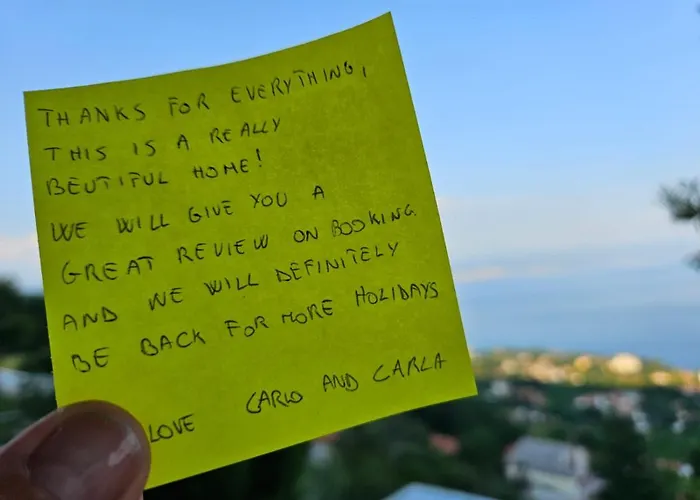 THANKS FOR EVERYTHING,
THIS IS A REALLY
BEUTIFUL HOME!
WE WILL GIVE YOU A
GREAT REVIEW ON BOOKING.
AND WE WILL DEFINITELY
BE BACK FOR MORE HOLIDAYS
LOVE CARLO AND CARLA